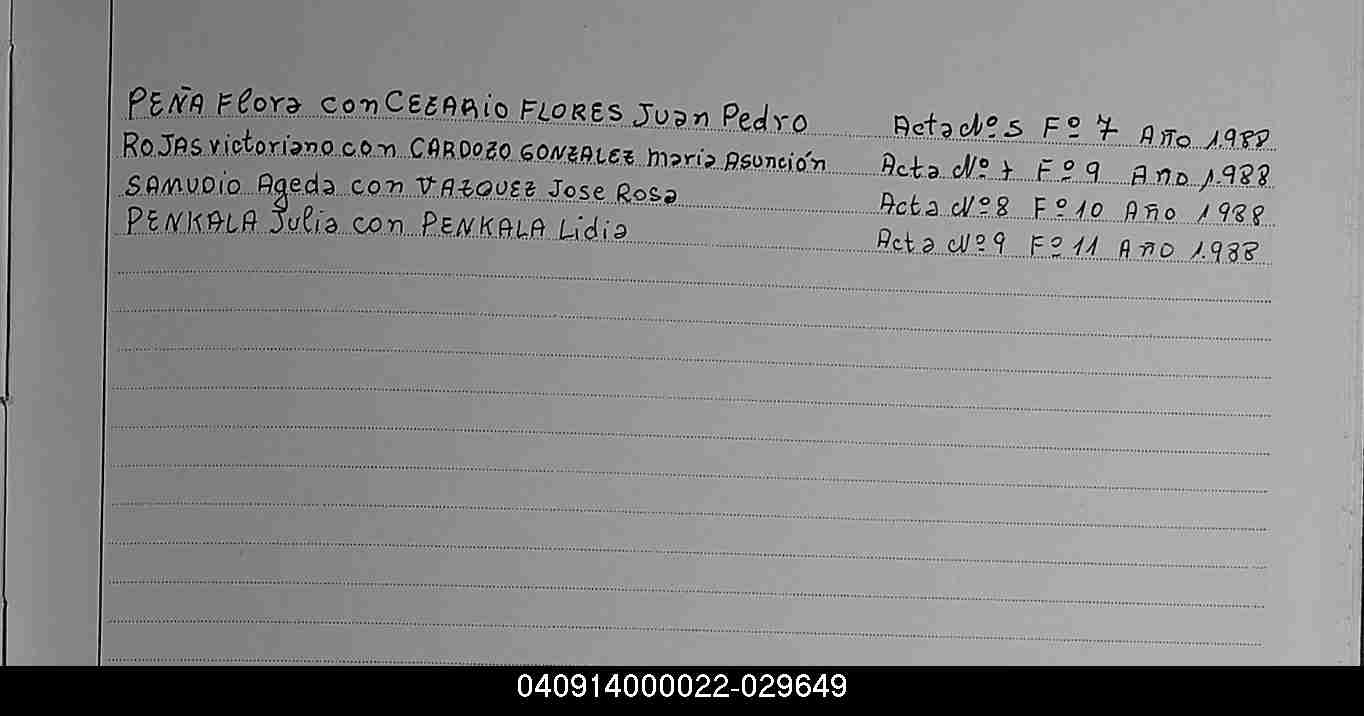 PEÑA Flora con CEZARIO FLORES Juan Pedro Acta Nº 5 Fº 7 Año 1.988
ROJAS victoriano con CARDOZO GONZALEZ maria Asunción Acta Nº 7 Fº 9 Año 1.988
SAMUDIO Ageda con VAZQUEZ Jose Rosa Acta Nº 8 Fº 10 Año 1988
PENKALA Julia con PENKALA Lidia Acta Nº 9 Fº 11 Año 1.988
040914000022-029649